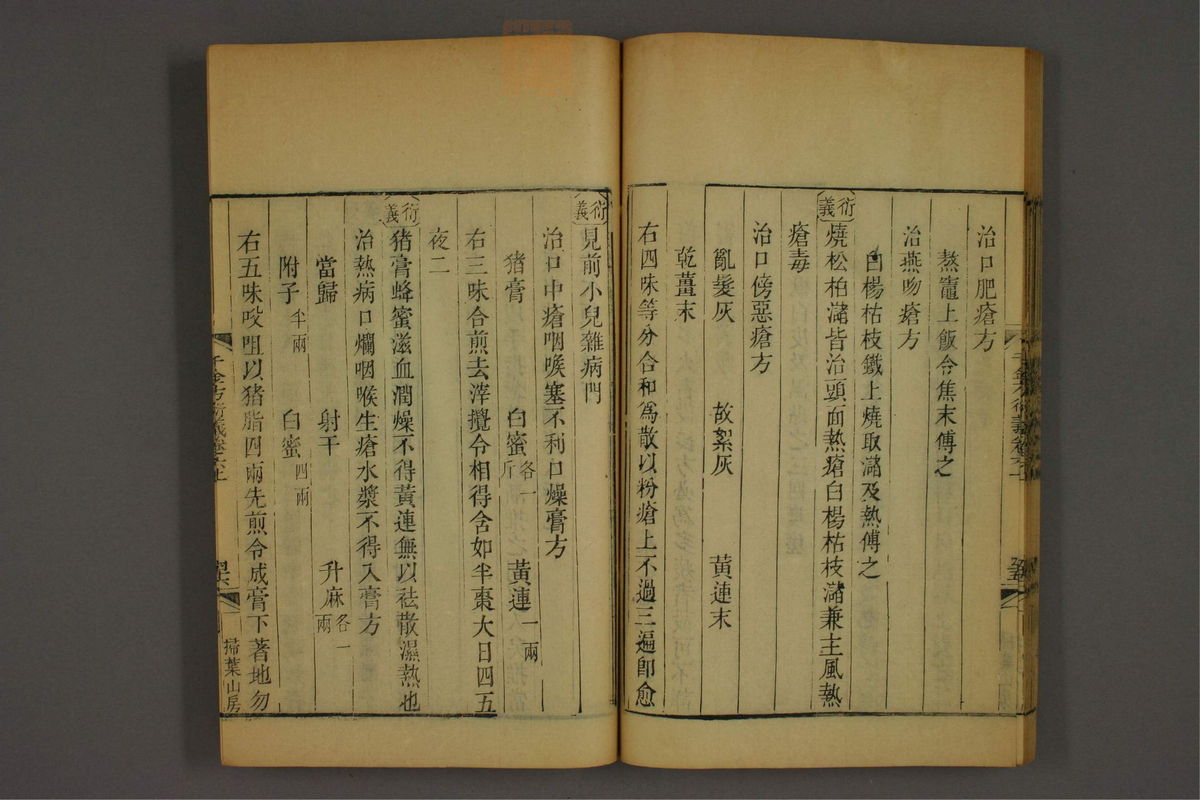 治口肥瘡方
熬竈上飯令焦末傅之
治燕吻瘡方
白楊枯枝鐵上燒取瀋及熱傅之
衍義 燒松柏瀋皆治頭面熱瘡白楊枯枝瀋兼主風熱
瘡毒
治口傍惡瘡方
亂髮灰 故絮灰 黃連末
乾薑末
右四味等分合和為散以粉瘡上不過三遍卽愈
衍義 見前小兒雜病門
治口中瘡咽喉塞不利口燥膏方
豬膏 白蜜各一斤 黃連一兩
右三味合煎去滓攪令相得含如半棗大日四五
夜二
衍義 豬膏蜂蜜滋血潤燥不得黃連無以祛散濕熱也
治熱病口爛咽喉生瘡水漿不得入膏方
當歸 射干 升麻各一兩
附子半兩 白蜜四兩
右五味㕮咀以豬脂四兩先煎令成膏下著地勿
掃葉山房